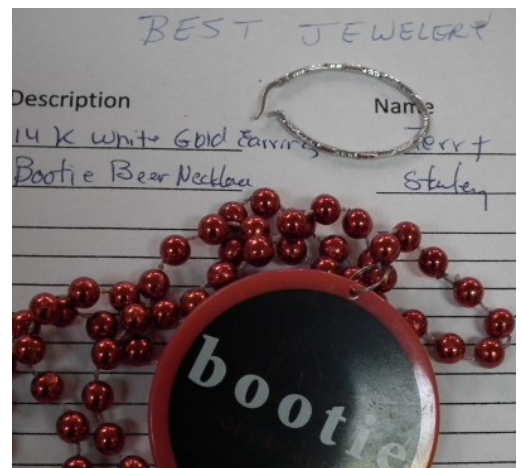 BEST JEWELERY
Description Name
14 K White Gold Earring Terr t
Bootie Beer Necklace Stanley
bootie